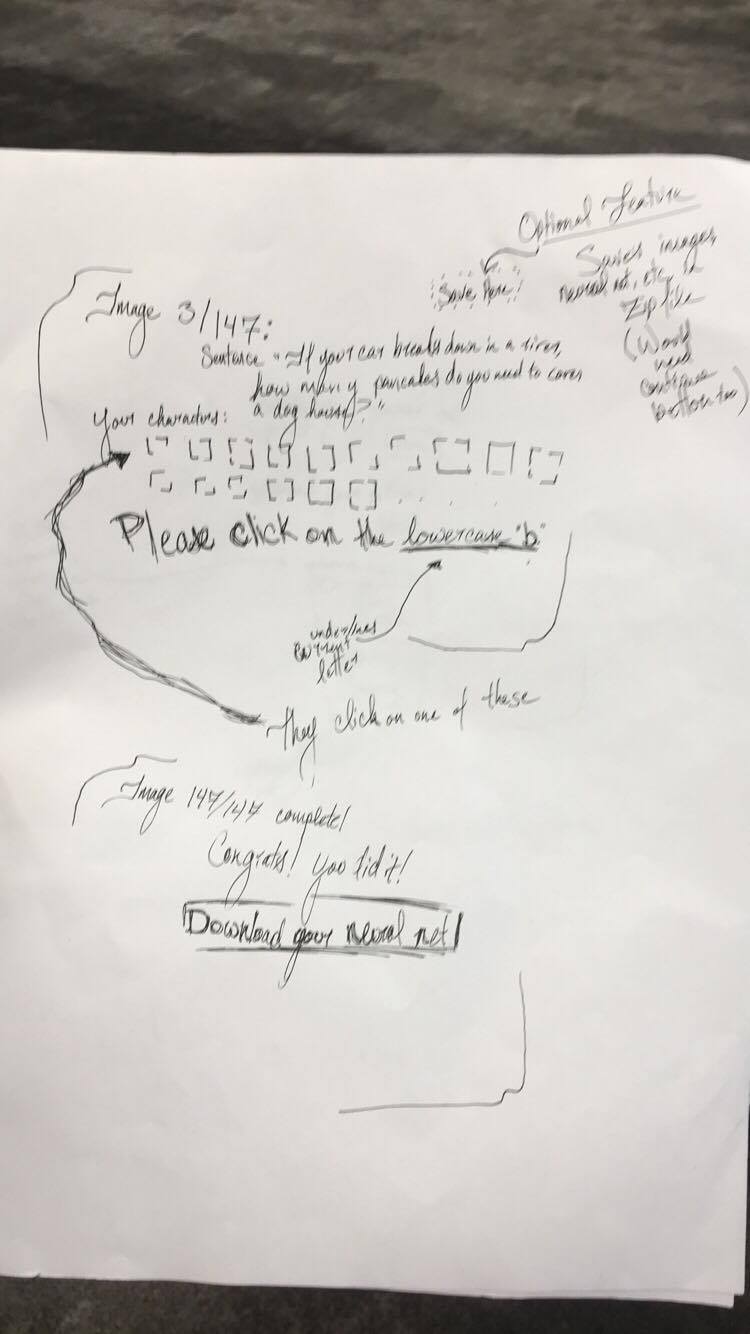 Optional Feature
Save Here
Saves images,
neural net, etc, in
Zip file
(Would
need
continue
button too)
Image 3/147:
Sentence "If your car breaks down in a river,
how many pancakes do you need to cover
a dog house?"
Your characters:
Please click on the lowercase "b"
underlines
current
letter
They click on one of these
Image 147/147 complete!
Congrats! You did it!
Download your neural net!